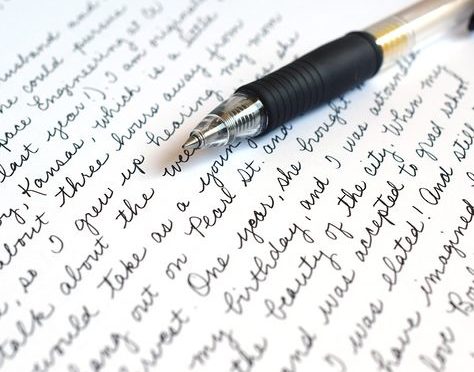 husband and
she could pursue
space Engineering at
last year!) I am
Kansas, which is a little
about three hours away from
so I grew up hearing my mom
talk about the she
would take as a young
hang out on Pearl St. and
One year, she brought
my birthday, and I was astounded
the beauty of the city. When my
and was accepted to grad school
I was elated! And
have imagined
love